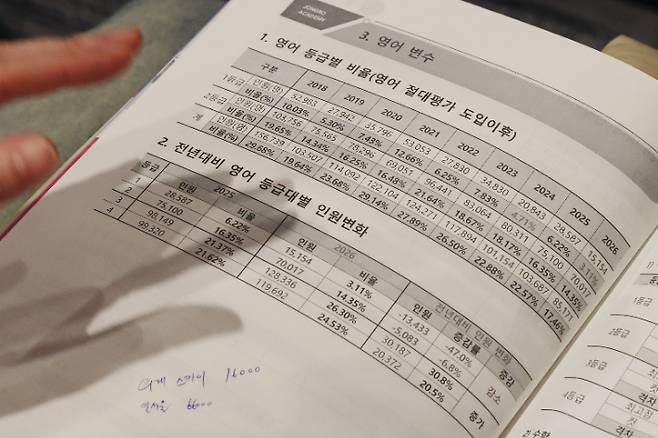 JONGRO
ACADEMY
3. 영어 변수
1. 영어 등급별 비율(영어 절대평가 도입이후)
구분 2018 2019 2020 2021 2022 2023 2024 2025 2026
1등급 인원(명) 52,983 27,942 35,796 53,053 27,830 34,830 20,843 28,587 15,154
비율(%) 10.03% 5.30% 7.43% 12.66% 6.25% 7.83% 4.71% 6.22% 3.11%
2등급 인원(명) 103,756 75,565 78,296 69,051 96,441 83,064 80,311 75,100 70,017
비율(%) 19.65% 14.34% 16.25% 16.48% 21.64% 18.67% 18.17% 16.35% 14.35%
계 인원(명) 156,739 103,507 114,092 122,104 124,271 117,894 101,154 103,687 85,171
비율(%) 29.68% 19.64% 23.68% 29.14% 27.89% 26.50% 22.88% 22.57% 17.46%
2. 전년대비 영어 등급대별 인원변화
등급 2025 2026 전년대비 인원 변화
인원 비율 인원 비율 인원 증감률 증감
1 28,587 6.22% 15,154 3.11% -13,433 -47.0% 감소
2 75,100 16.35% 70,017 14.35% -5,083 -6.8%
3 98,149 21.37% 128,336 26.30% 30,187 30.8% 증가
4 99,320 21.62% 119,692 24.53% 20,372 20.5%
16000
6600
1)
1등급
2등급
3등급
4등급
최고점
컷
격차
2) 수학